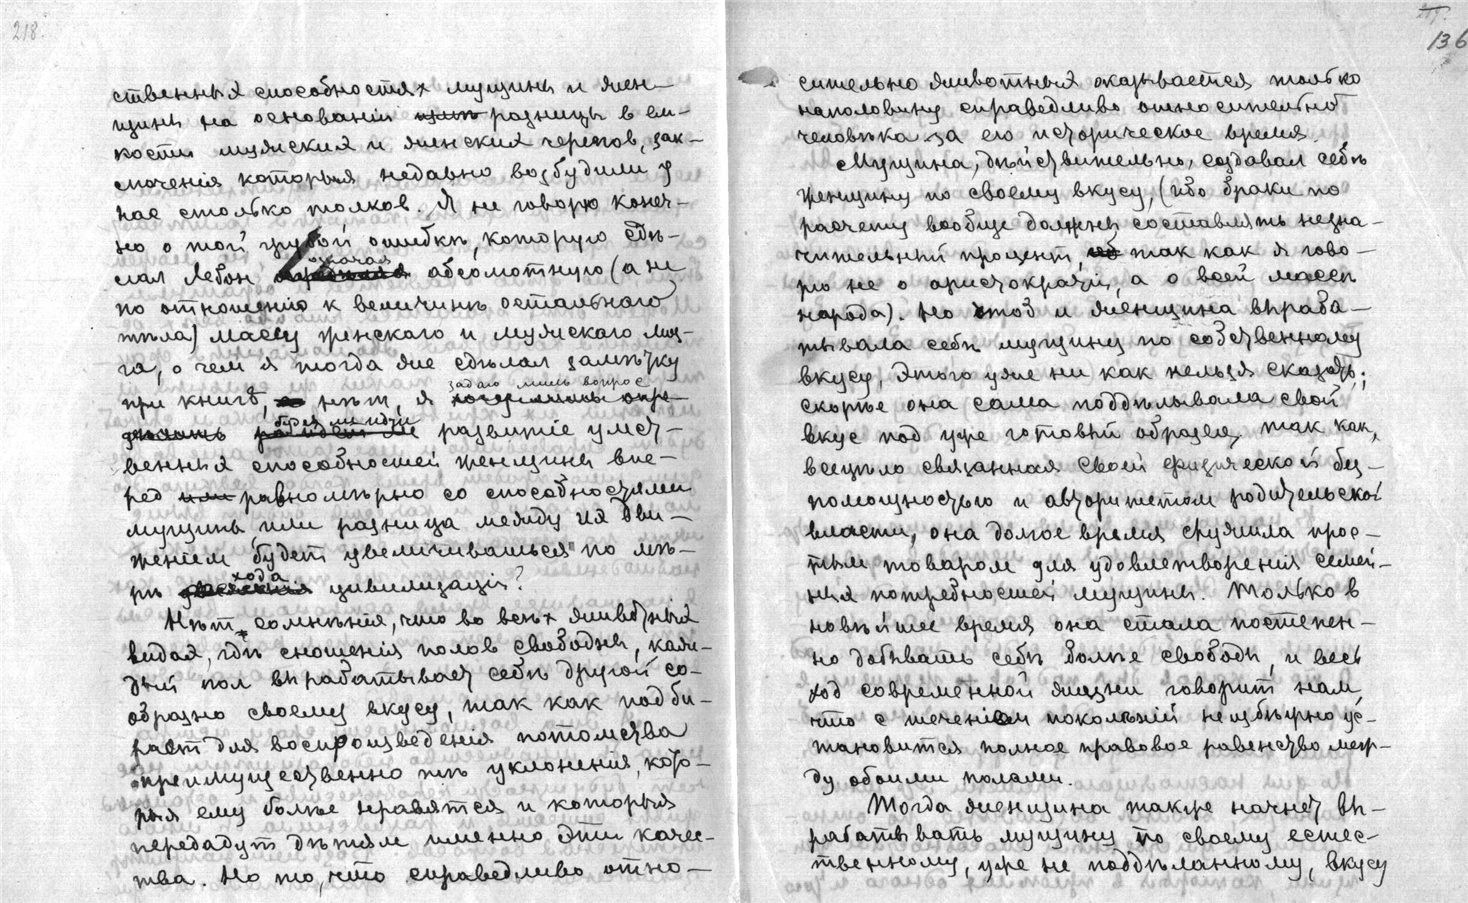 218.
ственныя способностях мущины и жен-
щины на основаніи разницы в ем-
кости мужских и женских черепов, зак-
лоченія которыя недавно возбудили у
нас столько толков. Я не говорю конеч-
но о той грубой ошибкѣ, которую сдѣ-
лал Лебон, означая абсолютную (а не
по отношенію к величинѣ остального
тѣла) массу женскаго и мужскаго моз-
га, о чем я тогда же сдѣлал замѣтку
при книгѣ, нѣт, я задаю лишь вопрос
будет ли идти развитіе умст-
венных способностей женщины впе-
ред равномѣрно со способностями
мущины или разница между их дви-
женіем будет увеличиваться по мѣ-
рѣ хода цивилизаціи?
Нѣт сомнѣнія, что во всѣх животных
видах, гдѣ сношенія полов свободны, каж-
дый пол вырабатывает себѣ другой со-
образно своему вкусу, так как подби-
рает для воспроизведенія потомства
преимущественно тѣ уклоненія, кото-
рыя ему болѣе нравятся и которыя
передадут дѣтям именно эти качес-
тва. Но то, что справедливо отно-
136
сительно животных оказывается только
наполовину справедливо относительно
человѣка за его историческое время.
Мущина, дѣйствительно, создавал себѣ
женщину по своему вкусу, (ибо браки по
расчету вообще должны составлять незна-
чительный процент, так как я гово-
рю не о аристократіи, а о всей массѣ
народа). Но чтоб и женщина выраба-
тывала себѣ мущину по собственному
вкусу, этого уже ни как нельзя сказать;
скорѣе она сама поддѣлывала свой
вкус под уже готовый образец, так как,
всецѣло связанная своей физической без-
помощностью и авторитетом родительской
власти, она долгое время служила прос-
тым товаром для удовлетворенія семей-
ных потребностей мущины. Только в
новѣйшее время она стала постепен-
но добывать себѣ болѣе свободы, и весь
ход современной жизни говорит нам,
что с теченіем поколѣній неизбѣжно ус-
тановится полное правовое равенство меж-
ду обоими полами.
Тогда женщина также начнет вы-
рабатывать мущину по своему естес-
твенному, уже не поддѣланному, вкусу